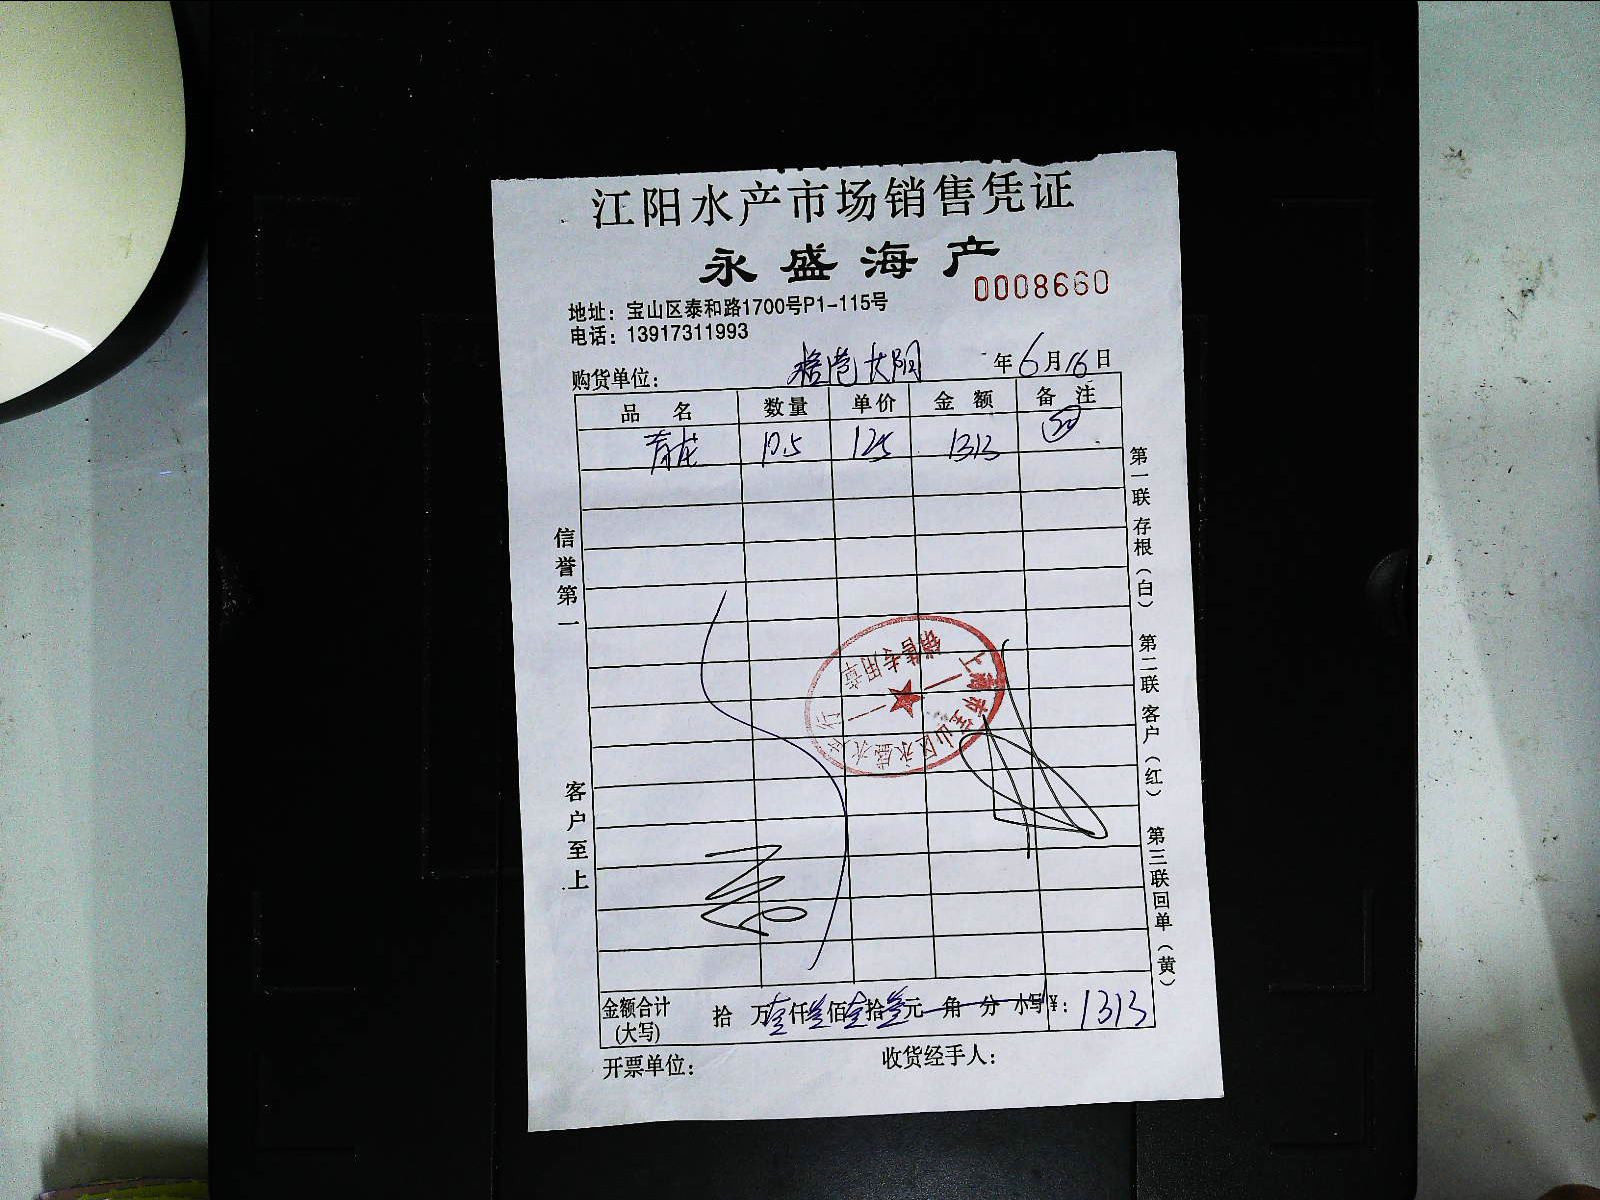 江阳水产市场销售凭证
永盛海产
0008660
地址：宝山区泰和路1700号P1-115号
电话：13917311993
购货单位： 年6月16日
品 名 数量 单价 金 额 备 注
青龙 10.5 125 1313
信誉第一
客户至上
第一联 存根（白） 第二联 客户（红） 第三联 回单（黄）
上海市宝山区永盛水产行
销售专用章
金额合计(大写) 拾 万壹仟叁佰壹拾叁元 角 分 小写¥：1313
开票单位： 收货经手人：